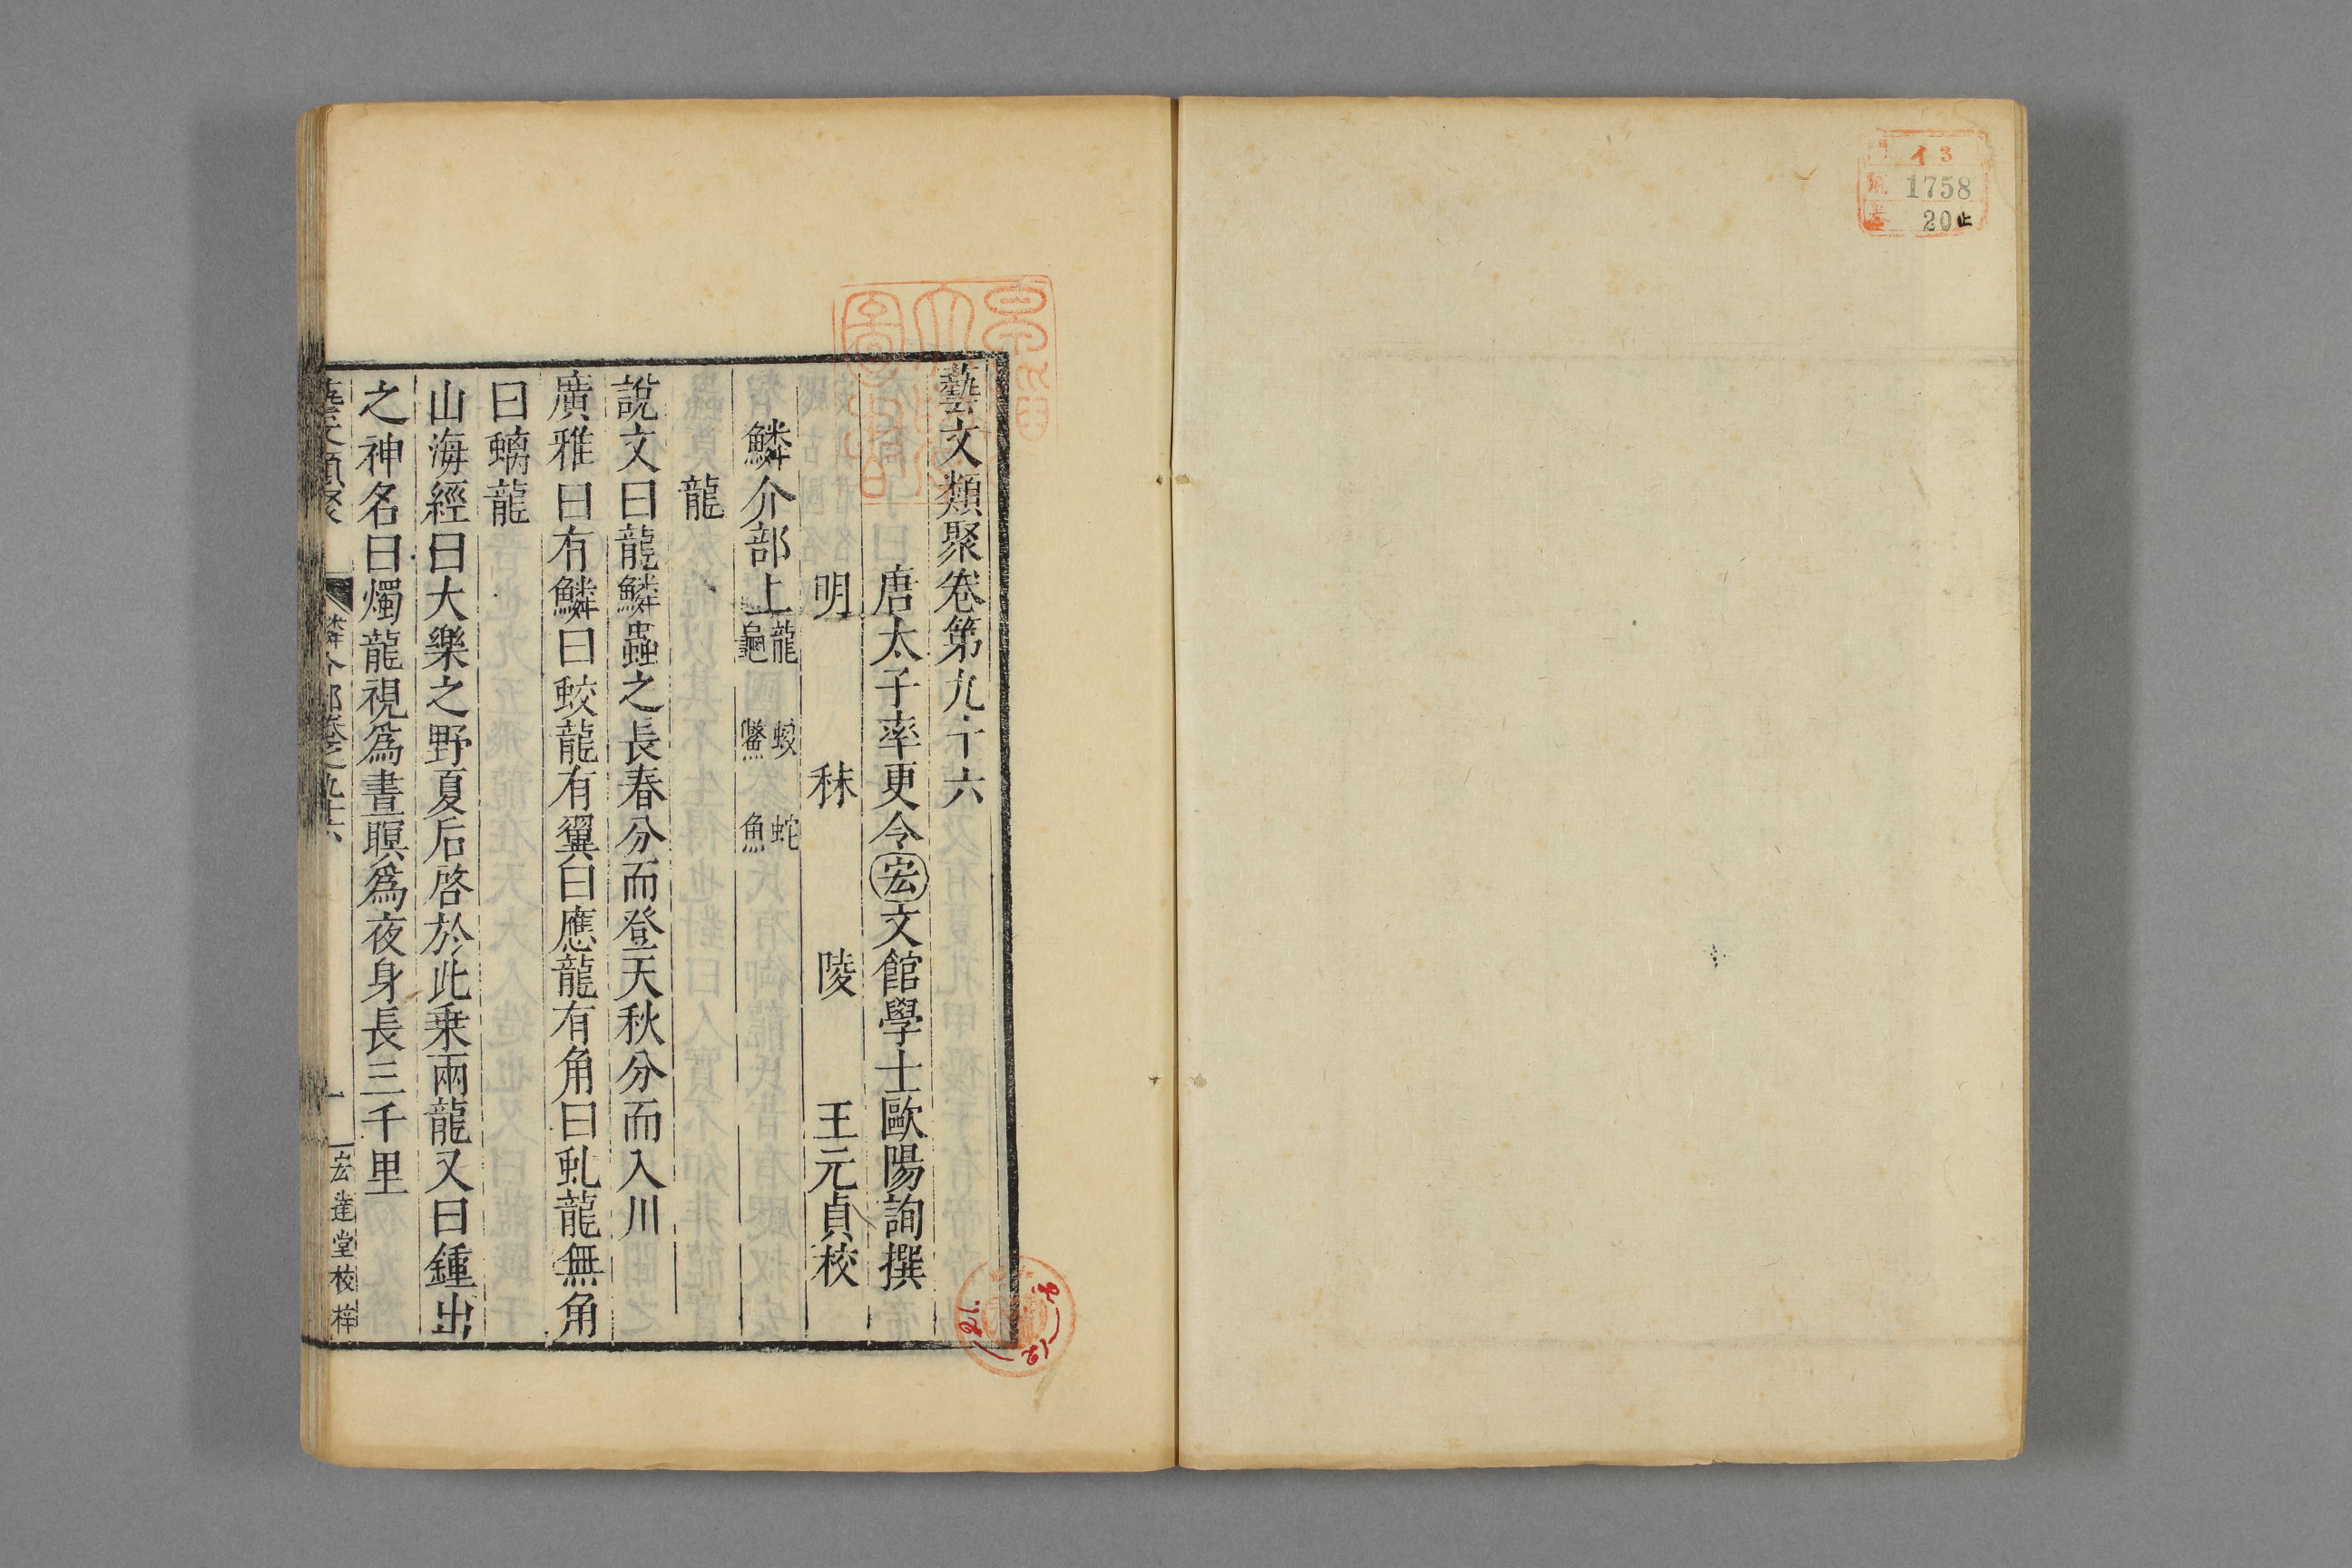 イ3
1758
20止
藝文類聚卷第九十六
唐太子率更令宏文館學士歐陽詢撰
明 秣 陵 王元貞校
鱗介部上 龍 蛟 蛇
龜 鼈 魚
龍
說文曰龍鱗蟲之長春分而登天秋分而入川
廣雅曰有鱗曰蛟龍有翼曰應龍有角曰虬龍無角
曰螭龍
山海經曰大樂之野夏后啓於此乗兩龍又曰鍾山
之神名曰燭龍視爲晝瞑爲夜身長三千里
藝文類聚 鱗介部卷之九十六 一 宏達堂校梓